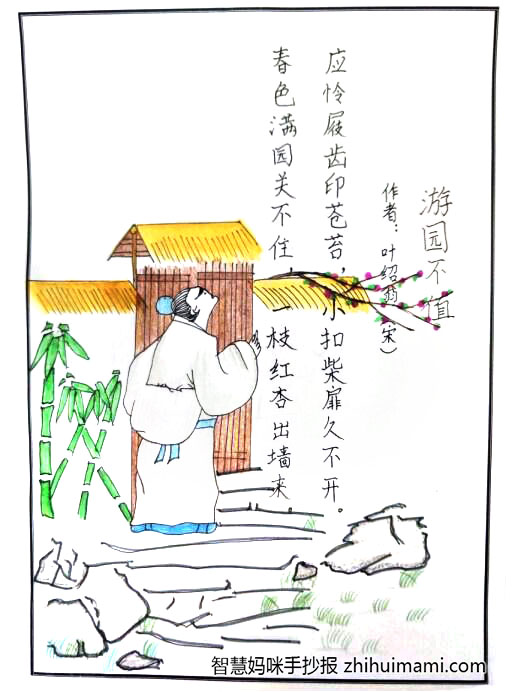 游园不值
作者：叶绍翁（宋）
应怜屐齿印苍苔，小扣柴扉久不开。
春色满园关不住，一枝红杏出墙来。
智慧妈咪手抄报 zhihuimami.com